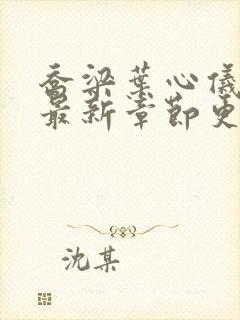 乔梁葉心儀
最新章節更
沈某